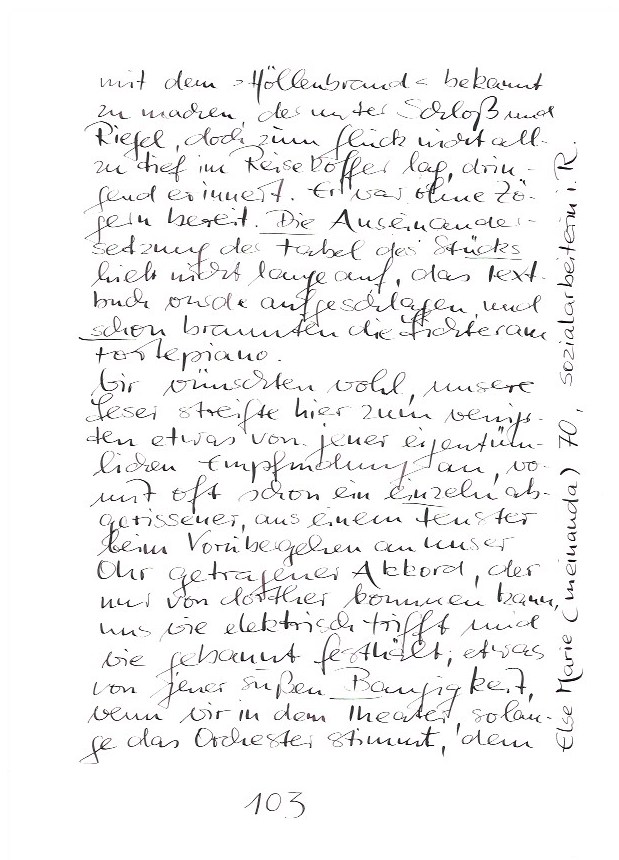 mit dem »Höllenbrand« bekannt
zu machen, der unter Schloß und
Riegel, doch zum Glück nicht all-
zu tief im Reisekoffer lag, drin-
gend erinnert. Er war ohne Zö-
gern bereit. Die Auseinander-
setzung der Fabel des Stücks
hielt nicht lange auf, das Text-
buch wurde aufgeschlagen und
schon brannten die Lichter am
Fortepiano.
Wir wünschten wohl, unsere
Leser streifte hier zum wenigs-
ten etwas von jener eigentüm-
lichen Empfindung an, wo-
mit oft schon ein einzeln ab-
gerissener, aus einem Fenster
beim Vorübergehen an unser
Ohr getragener Akkord, der
nur von dorther kommen kann,
uns wie elektrisch trifft und
wie gebannt festhält; etwas
von jener süßen Bangigkeit,
wenn wir in dem Theater, solan-
ge das Orchester stimmt, dem
103
Else Marie (Meinanda) 70, Sozialarbeiterin i. R.